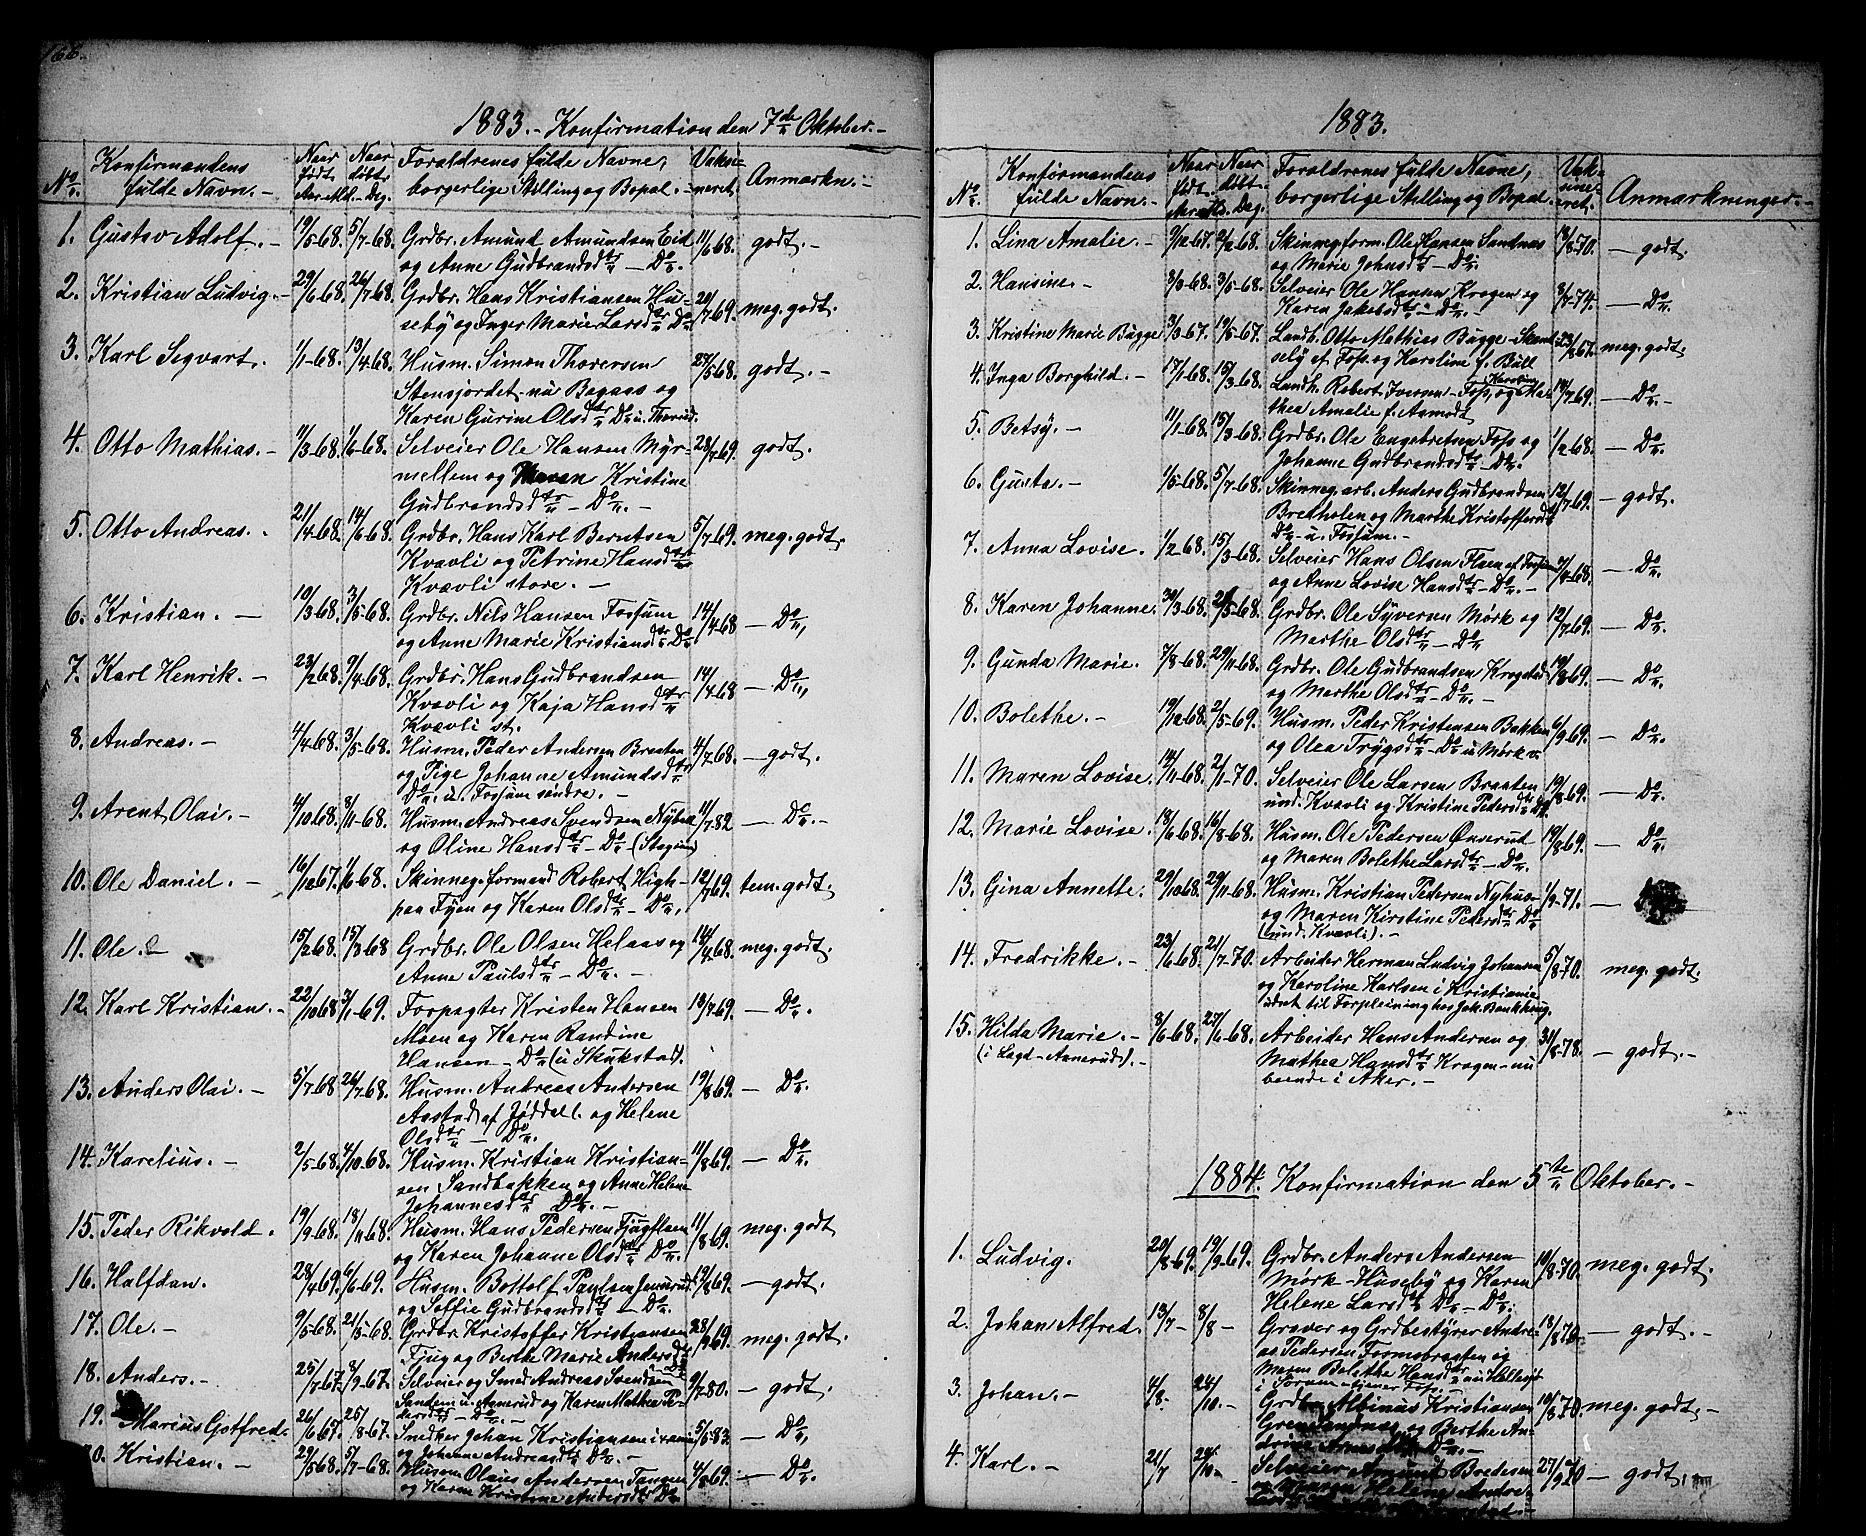 166.
1883. - Konfirmation den 7de Oktober. -
No. Konfirmandens fulde Navn. - Naar født Aar Md. Naar døbt Dag. Forældrenes fulde Navne, borgerlige Stilling og Bopæl. - Vaksineret. Anmærkn. -
1. Gustav Adolf. - 19/5-68. 5/7-68. Grdbr. Amund Amundsen Eid 11/6 68. godt. -
og Anne Gudbrandsdtr - Do.
2. Kristian Ludvig. - 29/6-68. 26/7-68. Grdbr. Hans Kristiansen Hu- 20/7 69. meg. godt.
seby og Inger Marie Larsdtr Do
3. Karl Segvart. 1/1-68. 13/4-68. Husm. Simon Thoresen 27/5 68. godt. -
Stensjordet - nu Bagaas og
Karen Gurine Olsdtr Do u. Thorud.
4. Otto Mathias. - 11/3-68. 1/6-68. Selveier Ole Hansen Myr- 28/7 69. godt.
mellem og Maren Kristine
Gudbrandsdtr - Do. -
5. Otto Andreas. - 21/4-68. 14/6-68. Grdbr. Hans Karl Berntsen 5/7-69. meg. godt.
Kvavli og Petrine Hansdtr
Kvavli store. -
6. Kristian. - 10/3-68. 3/5-68. Grdbr. Nils Hansen Fossum 14/4-68 - Do.
og Anne Marie Kristiansdtr Do
7. Karl Henrik. - 23/2 68. 9/4-68. Grdbr. Hans Gudbrandsen 14/4-68 - Do.
Kvavli og Kaja Hansdtr
Kvavli st.
8. Andreas. - 4/4-68. 3/5-68. Husm. Peder Andersen Braaten 4/7-68. - godt.
og Pige Johanne Amundsdtr
Do. u. Fossum søndre. -
9. Arent Olai. - 4/10 68. 8/11-68. Husm. Andreas Svendsen 11/7-82 - Do. -
og Oline Hansdtr - Do
10. Ole Daniel. - 16/12 67. 1/6-68. Skinneg. formand Robert High- 12/7 69. tem. godt.
paa Fyen og Karen Olsdtr - Do.
11. Ole. - 15/2 68. 15/3 68 Grdbr. Ole Olsen Helaas og 14/4 68. meg. godt.
Anne Paulsdtr - Do. -
12. Karl Kristian. - 22/10 68 3/1-69. Forpagter Kristen Hansen 13/7-69. - Do.
Moen og Karen Randine
Hansen - Do (u Skukstad).
13. Anders Olai. - 5/7-68 26/7-68. Husm. Andreas Andersen 19/8 69. - Do.
Aastad af Jøddal. og Helene
Olsdtr - Do.
14. Karelius. - 2/5-68. 4/10-68. Husm. Kristian Kristian- 11/8-69. - Do.
sen Sandbakken og Anne Helene
Johannesdtr Do. -
15. Peder Rikvold. 19/9-68. 18/11 68. Husm. Hans Pedersen 11/8-69. meg. godt
og Karen Johanne Olsdtr Do.
16. Halfdan. 28/4 69. 6/6-69. Husm. Bottolf Paulsen 19/8 69. - godt.
og Soffie Gudbrandsdtr - Do.
17. Ole. - 9/5-68. 21/5-68. Grdbr. Kristoffer Kristiansen 28/9 69. meg. godt.
Fjug og Berthe Marie Andersdtr
18. Anders. - 25/7-67. 8/9-67. Selveier og Smed Andreas Svendsen 9/7-80. - godt.
Sandem u. Aamerud og Karen Mathea Pe-
dersdtr - Do. -
19. Marius Gotfred. 26/6 67. 25/8-67. Snedker Johan Kristiansen 5/6-83. - Do.
og Johanne Andreasdtr Do. -
20. Kristian. - 29/5 68. 5/7-68. Husm. Olaus Andersen Tangen 4/8 69. - Do.
og Karen Kristine Andersdtr Do
1883.
No. Konfirmandens fulde Navn. - Naar født Naar døbt Dag. Forældrenes fulde Navne, borgerlige Stilling og Bopæl. Vaksineret. Anmærkninger. -
1. Lina Amalie. - 9/12-67. 2/2-68. Skinneg. form. Ole Hansen Sandnes 18/8-70. - godt.
og Marie Johnsdtr - Do.
2. Hansine. - 3/5-68. Selveier Ole Hansen Krogen og 8/7-74. - Do.
Karen Jakobsdtr - Do. -
3. Kristine Marie Bugge 3/3-67. 19/6-67. Landh. Otto Mathias Bugge 23/8 67. meg. godt.
af Foss. og Karoline f. Bull
4. Inga Borghild. - 17/1-68. 15/3-68. Landh. Robert Iversen - Foss. og Karoline Ma- 19/7 69. - Do. -
thea Amalie f. Aamodt
5. Betsy. - 11/1-68. 15/3-68. Grdbr. Ole Engebretsen Foss og 1/2-68. - Do.
Johanne Gudbrandsdtr - Do.
6. Gusta. - 1/5-68. 5/7-68. Skinneg. arb. Anders Gudbrandsen 12/7-69. - godt.
Bretholen og Marthe Kristoffersdtr
Do - u. Fossum. -
7. Anna Lovise. 1/2-68. 15/3-68. Selveier Hans Olsen Flaen af Fossum 7/8-68. - Do.
og Anne Lovise Hansdtr - Do. -
8. Karen Johanne. 30/3-68. 21/5-68. Grdbr. Ole Syversen Mørk og 12/7-69. - Do.
Marthe Olsdtr - Do
9. Gunda Marie. 7/8-68. 29/11-68. Grdbr. Ole Gudbrandsen Krogstad 19/8 69. - Do.
og Marthe Olsdtr - Do. -
10. Bolethe. - 19/12-68. 2/5-69. Husm. Peder Kristensen Bakken 6/9-69. - Do.
og Olea Trygsdtr - Do u Mørk v.
11. Maren Lovise. 14/11-68. 2/11-70. Selveier Ole Larsen Braaten 19/8-69. - Do.
und. Kvavli og Kristine Pedersdtr Do
12. Marie Lovise. 18/6 68. 16/8-68. Husm. Ole Pedersen Ønserud 19/8 69. - Do.
og Maren Bolethe Larsdtr - Do.
13. Gina Annette. 29/10 68. 29/11-68. Husm. Kristian Pedersen Nyhus 1/9-71. -
og Maren Kirstine Pedersdtr Do
(und. Kvavli). -
14. Fredrikke. - 23/6 68. 21/7-70. Arbeider Herman Ludvig Johansen 5/8-70. meg. godt.
og Karoline Karlsen i Kristiania
udsat til Forpleining hos Joh.
15. Hilda Marie. - 8/6-68. 27/6-68. Arbeider Hans Andersen og 31/8-78. - godt. -
(i Lagd - Aamerud). - Mathea Hansdtr Krogen - nu
boende i Aker. -
1884. Konfirmation den 5te Oktober. -
1. Ludvig. 20/8-69. 19/9-69. Grdbr. Anders Andersen 10/8-70. meg. godt.
Mørk - Huseby og Karen
Helene Larsdtr Do - Do.
2. Johan Alfred. 13/7 - 8/8 - Graver og Grdbestyrer Andre- 18/8 70. - godt. -
as Pedersen Formobraaten og
Maren Bolethe Hansdtr
3. Johan. - 4/8- 24/10. - Grdbr. Albinus Kristiansen 10/8 70. meg. godt. -
og Berthe An-
drine Do. -
4. Karl. - 21/7 24/10 - Selveier Amund Bredesen 27/9 20 - godt.
og Helene Andre-